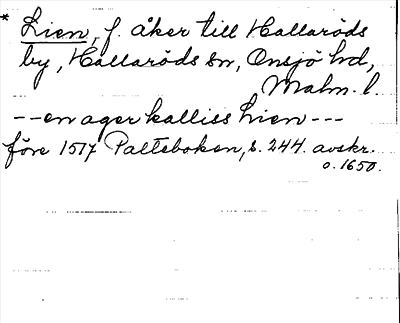 * Lien, f. åker till Hallaröds
by, Hallaröds sn, Onsjö hd,
Malm. l.
--en ager kalliss Lien---
före 1517 Palteboken, s. 244. avskr.
o. 1650.